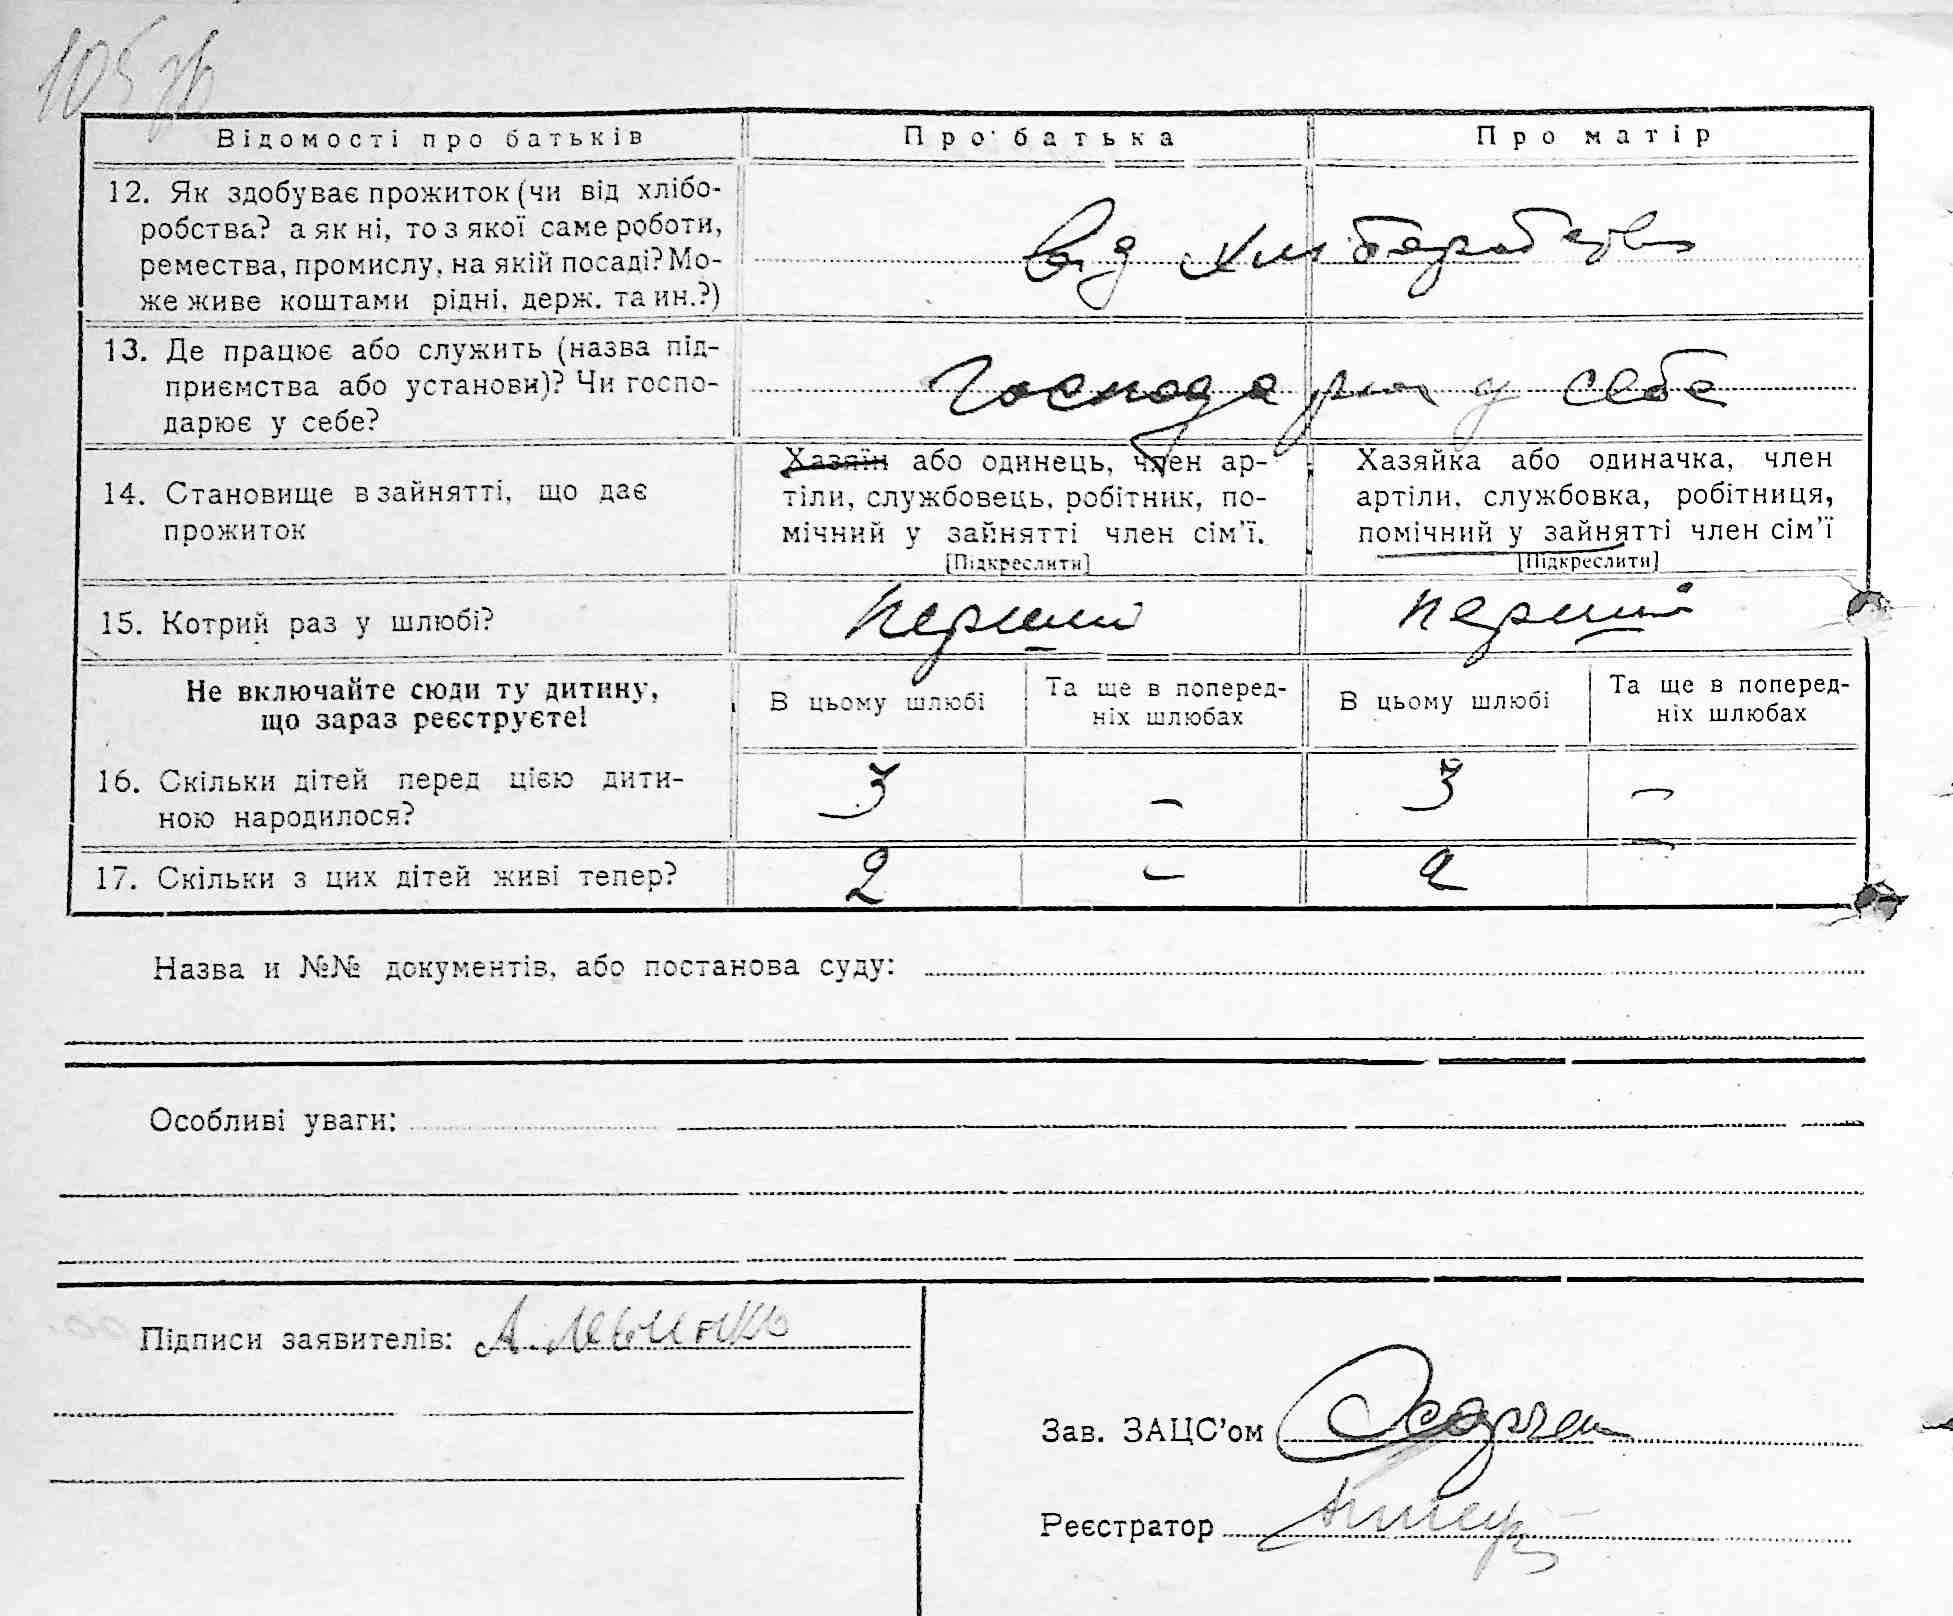 105 зв
Відомості про батьків
Про батька
Про матір
12. Як здобуває прожиток (чи від хлібо-
робства? а як ні, то з якої саме роботи,
ремества, промислу, на якій посаді? Мо-
же живе коштами рідні, держ. та ин.?)
Від
13. Де працює або служить (назва під-
приємства або установи)? Чи госпо-
дарює у себе?
у себе
14. Становище в зайнятті, що дає
прожиток
Хазяїн або одинець, член ар-
тіли, службовець, робітник, по-
мічний у зайнятті член сім'ї.
[Підкреслити]
Хазяйка або одиначка, член
артіли, службовка, робітниця,
помічний у зайнятті член сім'ї
[Підкреслити]
15. Котрий раз у шлюбі?
перший
перший
Не включайте сюди ту дитину,
що зараз реєструєте!
В цьому шлюбі
Та ще в поперед-
ніх шлюбах
В цьому шлюбі
Та ще в поперед-
ніх шлюбах
16. Скільки дітей перед цією дити-
ною народилося?
3
–
3
–
17. Скільки з цих дітей живі тепер?
2
–
2
–
Назва и №№ документів, або постанова суду:
Особливі уваги:
Підписи заявителів:
Зав. ЗАЦС'ом
Реєстратор